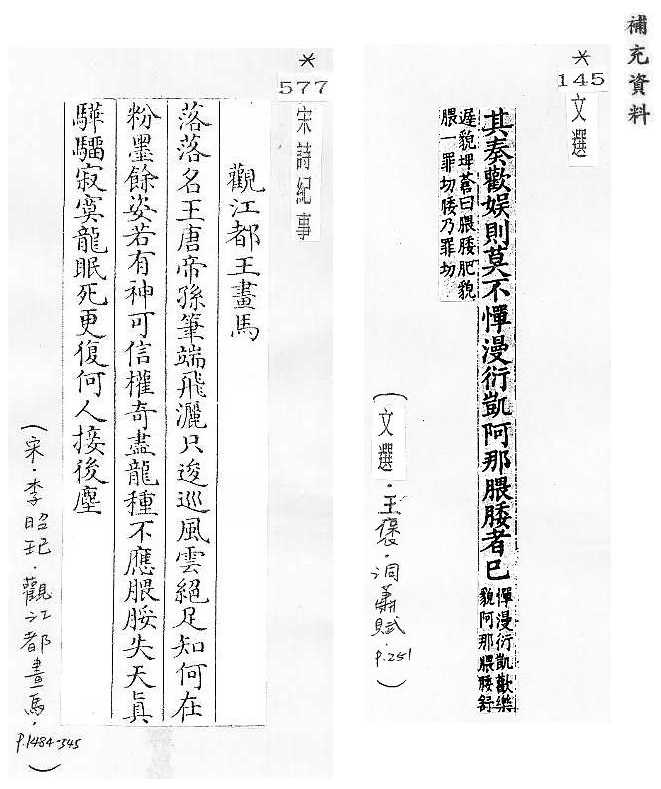 補充資料
*
145
文選
其奏歡娱則莫不憚漫衍凱阿那腲腇者已
憚漫衍凱歡樂
貌阿那腲腇舒
遲貌埤蒼曰腲腇肥貌
腲一罪切腇乃罪切
(文選.王褒.洞簫賦.p.251)
*
577
宋詩紀事
觀江都王畫馬
落落名王唐帝孫筆端飛灑只逡巡風雲絕足知何在
粉墨餘姿若有神可信權奇盡龍種不應腲腇失天眞
驊騮寂寞龍眠死更復何人接後塵
(宋.李昭玘.觀江都畫馬.p.1484-545)